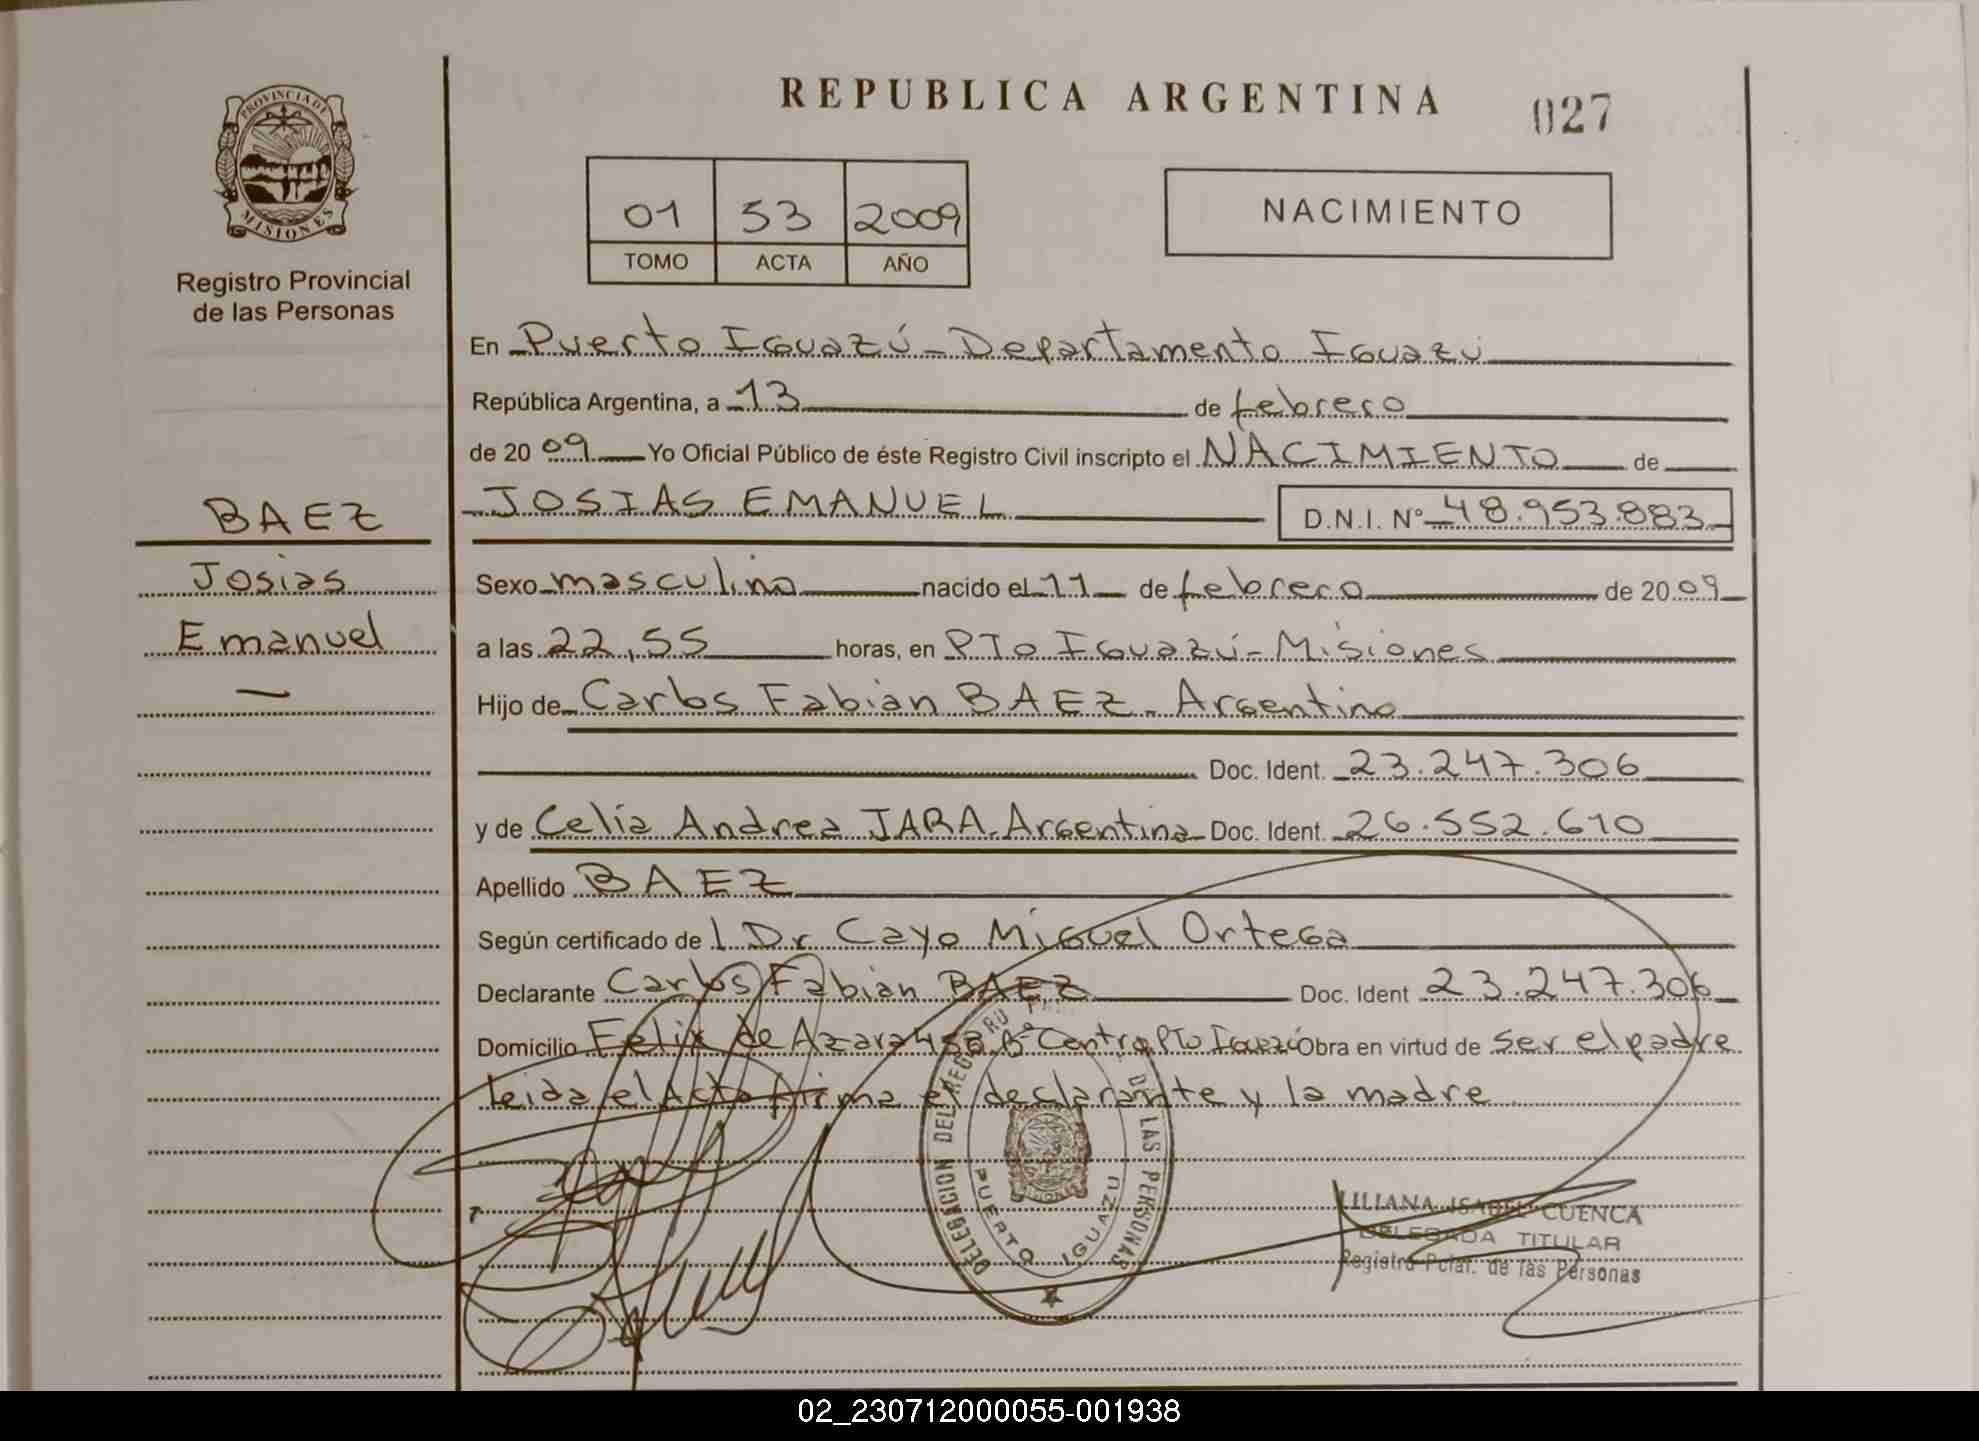 REPUBLICA ARGENTINA
027
PROVINCIA DE
MISIONES
Registro Provincial
de las Personas
01 53 2009
TOMO ACTA AÑO
NACIMIENTO
En Puerto Iguazú - Departamento Iguazú
República Argentina, a 13 de febrero
de 2009 Yo Oficial Público de éste Registro Civil inscripto el NACIMIENTO de
JOSIAS EMANUEL D.N.I. Nº 48.953.883
BAEZ
Josias
Emanuel
Sexo masculino nacido el 11 de febrero de 2009
a las 22,55 horas, en PTo Iguazú - Misiones
Hijo de Carlos Fabian BAEZ - Argentino
Doc. Ident. 23.247.306
y de Celia Andrea JARA - Argentina Doc. Ident. 26.552.610
Apellido BAEZ
Según certificado de l Dr Cayo Miguel Ortega
Declarante Carlos Fabian BAEZ Doc. Ident 23.247.306
Domicilio Felix de Azara Bº Centro PTo Iguazú Obra en virtud de ser el padre
leida el Acta firma el declarante y la madre
DELEGACION DEL REGISTRO DE LAS PERSONAS
PUERTO IGUAZU
LILIANA ISABEL CUENCA
DELEGADA TITULAR
Registro Pcial. de las Personas
02_230712000055-001938